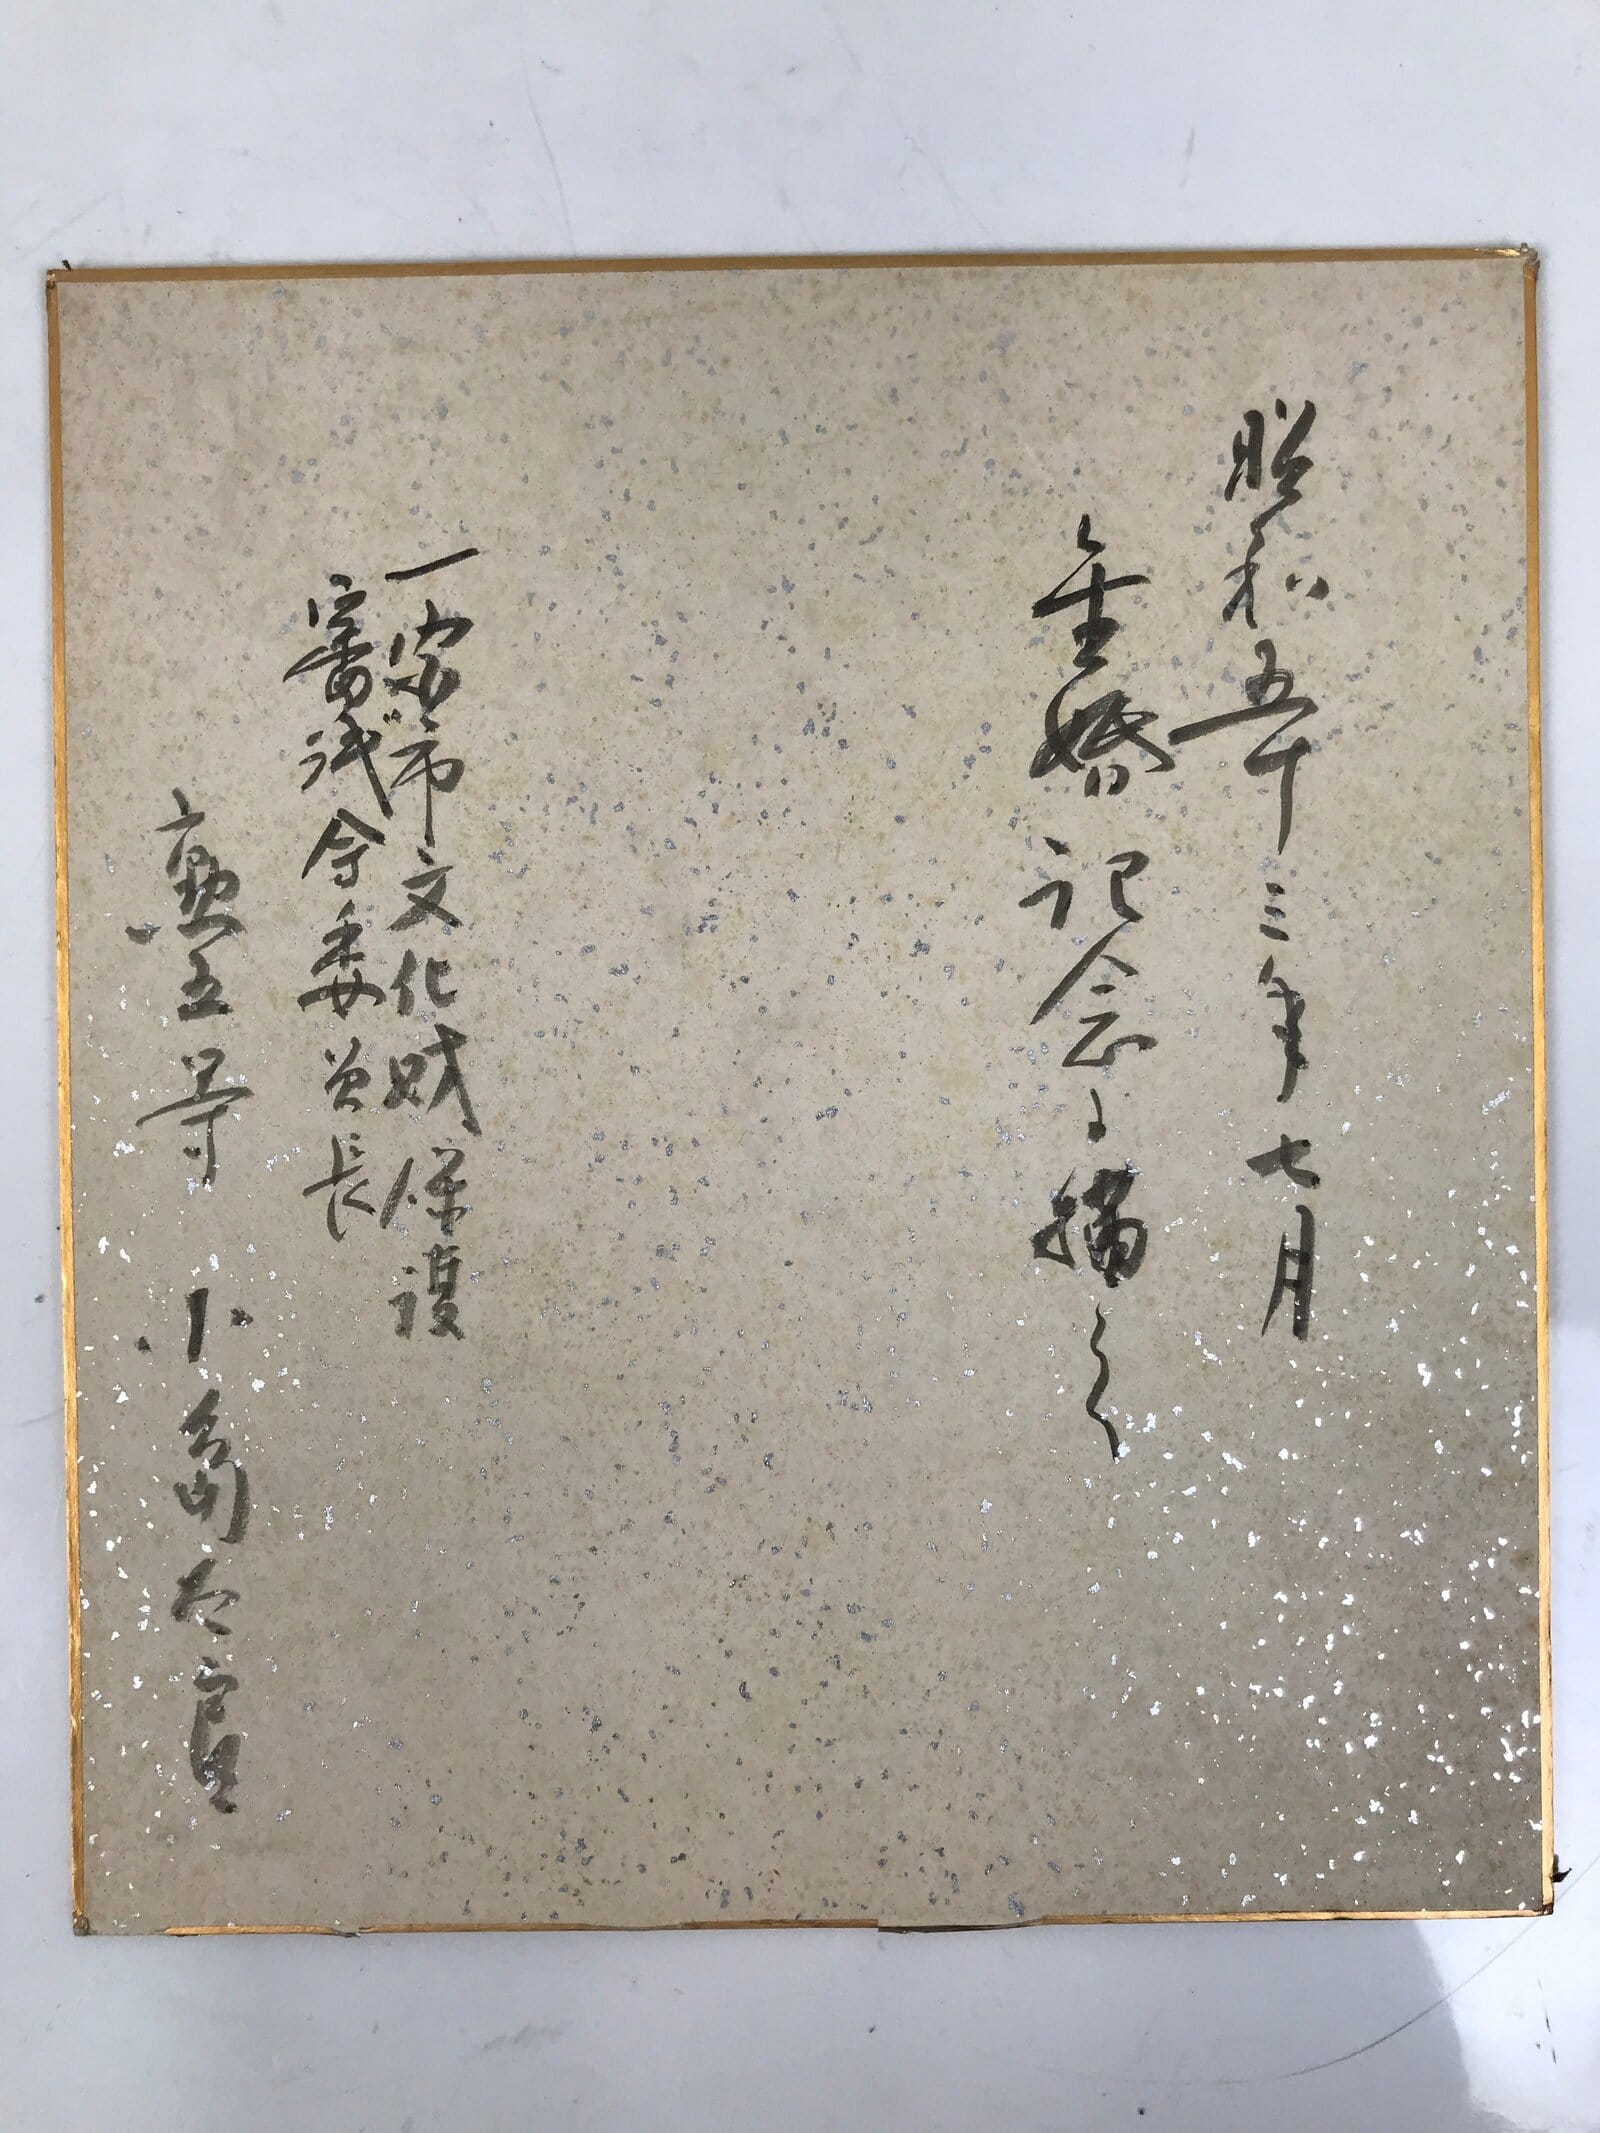 昭和五十三年七月
金婚記念に描
一宮市文化財保護
審議会委員長
勲五等 小島